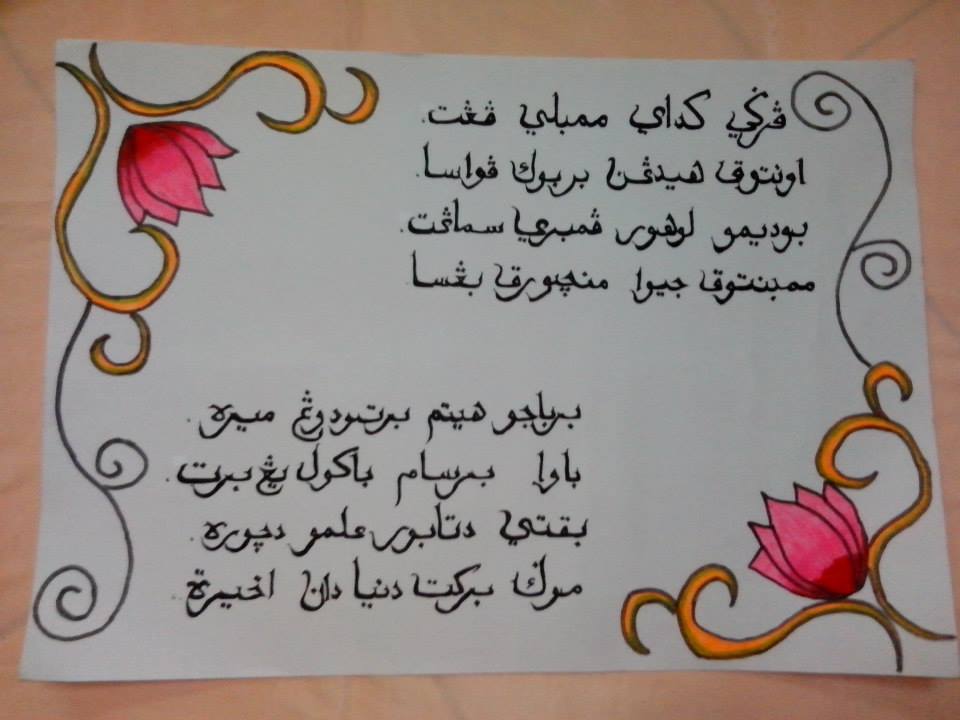 ڤرݢي كداي ممبلي ڤڠت.
اونتوق هيدڠن بربوك ڤواسا.
بوديمو لوهور ڤمبري سماڠت.
ممبنتوق جيوا منچورق بڠسا
برباجو هيتم برتودوڠ ميره.
باوا برسام باكول يڠ برت.
بقتي دتابور علمو دچوره.
موݢ بركت دنيا دان اخيرة.